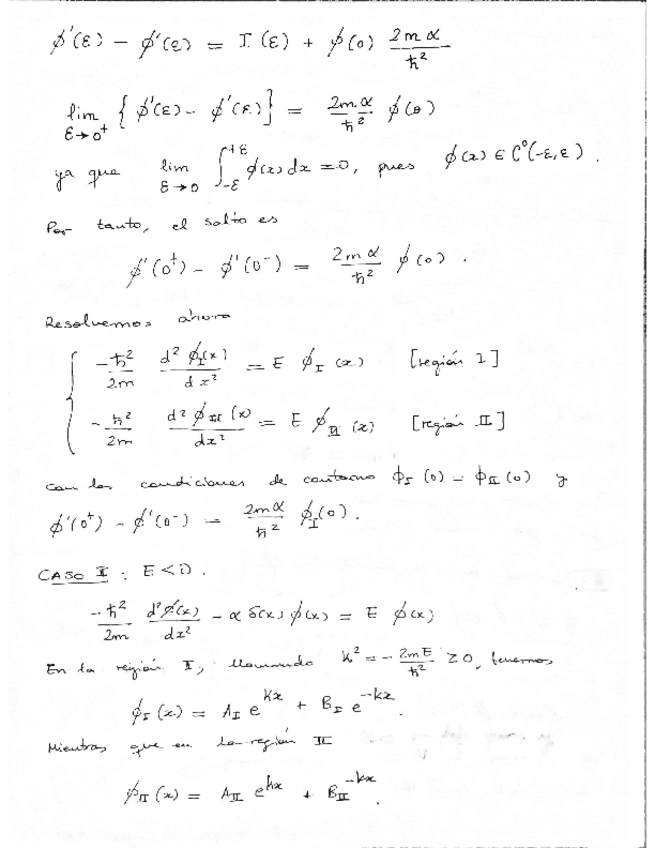 ϕ'(ε) - ϕ'(ε) = I(ε) + ϕ(0) 2mα/ħ²
lim ε→0⁺ { ϕ'(ε) - ϕ'(ε) } = 2mα/ħ² ϕ(0)
ya que lim ε→0 ∫_{-ε}^{+ε} ϕ(x) dx = 0, pues ϕ(x) ∈ C⁰(-ε,ε).
Por tanto, el salto es
ϕ'(0⁺) - ϕ'(0⁻) = 2mα/ħ² ϕ(0).
Resolvemos ahora
-ħ²/2m d²ϕ_I(x)/dx² = E ϕ_I(x) [región I]
-ħ²/2m d²ϕ_II(x)/dx² = E ϕ_II(x) [región II]
con las condiciones de contorno ϕ_I(0) = ϕ_II(0) y
ϕ'(0⁺) - ϕ'(0⁻) = 2mα/ħ² ϕ_I(0).
CASO I : E < 0.
-ħ²/2m d²ϕ(x)/dx² - α δ(x) ϕ(x) = E ϕ(x)
En la región I, llamando k² = - 2mE/ħ² ≥ 0, tenemos
ϕ_I(x) = A_I e^{kx} + B_I e^{-kx}.
Mientras que en la región II
ϕ_II(x) = A_II e^{kx} + B_II^{-kx}.